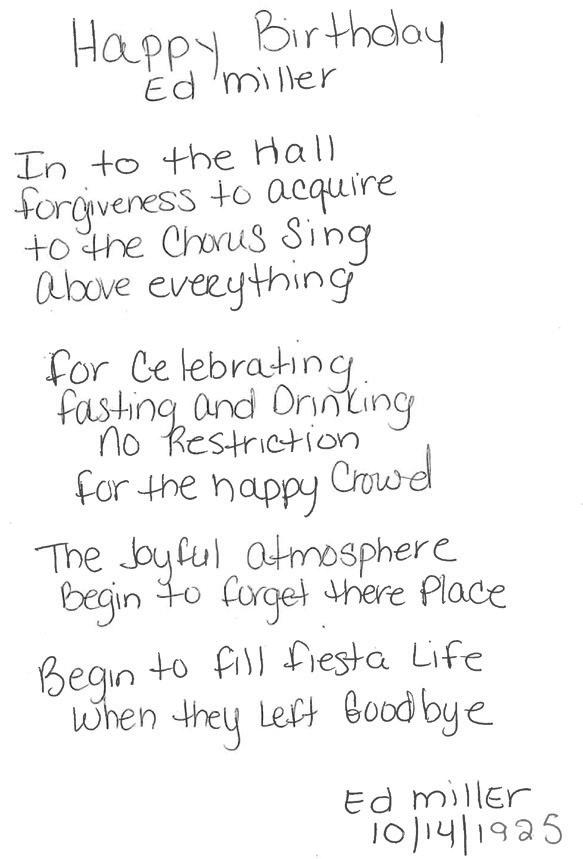 Happy Birthday
Ed miller
In to the Hall
forgiveness to acquire
to the Chorus Sing
above everything
for Celebrating
fasting and Drinking
no Restriction
for the happy Crowd
The Joyful atmosphere
Begin to forget there Place
Begin to fill fiesta Life
when they Left Goodbye
Ed millEr
10/14/1925